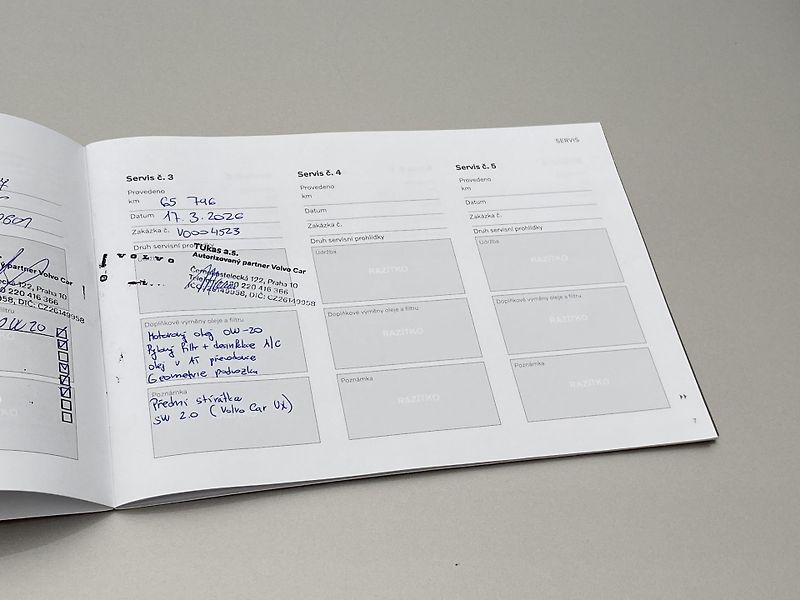 SERVIS
partner Volvo Car
122, Praha 10
220 416 366
DIČ: CZ26149958
0W 20
Servis č. 3
Provedeno
km 65 796
Datum 17.3.2026
Zakázka č. V0004523
Druh servisní prohlídky
volvo
TUkas a.s.
Autorizovaný partner Volvo Car
Černokostelecká 122, Praha 10
220 416 366
DIČ: CZ26149958
Doplňkové výměny oleje a filtru
Motorový olej 0W-20
Pylový filtr + desinfekce A/C
olej v AT převodovce
Geometrie podvozku
Poznámka
Přední stírátka
SW 2.0 (Volvo Car UX)
Servis č. 4
Provedeno
km
Datum
Zakázka č.
Druh servisní prohlídky
Údržba
RAZÍTKO
Doplňkové výměny oleje a filtru
RAZÍTKO
Poznámka
RAZÍTKO
Servis č. 5
Provedeno
km
Datum
Zakázka č.
Druh servisní prohlídky
Údržba
RAZÍTKO
Doplňkové výměny oleje a filtru
RAZÍTKO
Poznámka
RAZÍTKO
7